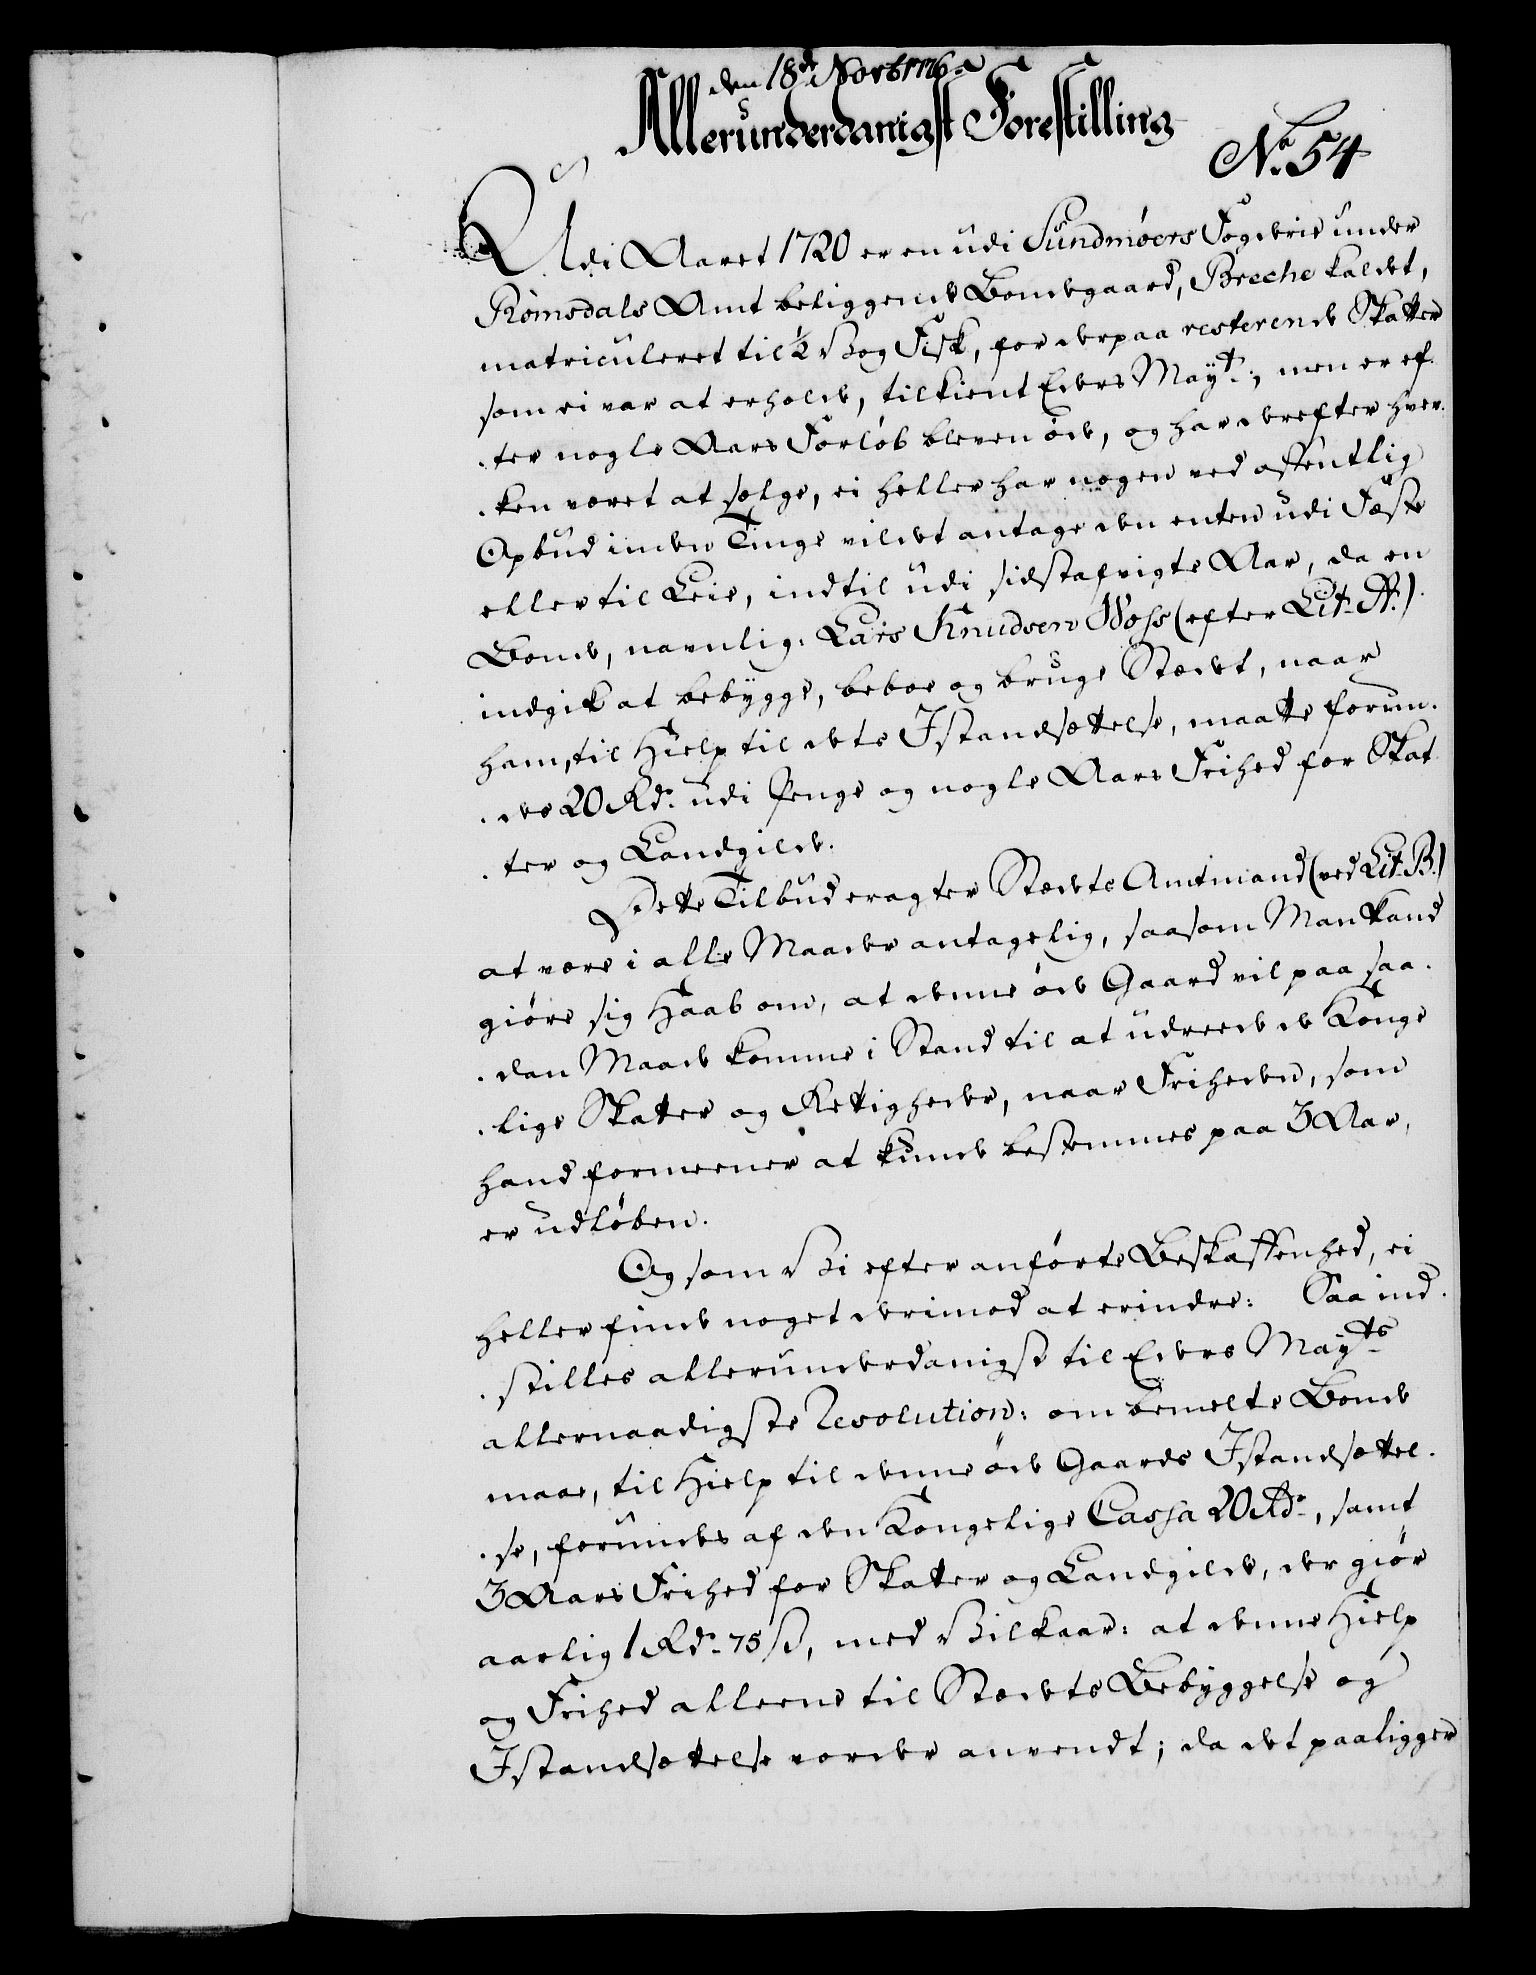 den 18de Novbr 176
Allerunderdanigst Forestilling
No. 54
Udi Aaret 1720 er en udi Sundmøers Fogderie under
Romsdals Amt beliggende Bondegaard, Breche kaldet,
matriculeret til ½ Vog Fisk, for derpaa resterende Skatter
som ei var at erholde, tilkient Eders Mayt:, men er ef-
ter nogle Aars Forløb bleven øde, og har derefter hver-
ken været at sælge, ei heller har nogen ved offentlig
Opbud inden Tinge vildet antage den enten udi Fæste
eller til Leie, indtil udi sidstafvigte Aar, da en
Bonde, navnlig: Lars Knudsen Woss (efter Lit. A.)
indgik at bebygge, beboe og bruge Stædet, naar
ham, til Hielp til dets Istandsættelse, maatte forun-
des 20 Rdr. udi Penge og nogle Aars Frihed for Skat-
ter og Landgilde.
Dette Tilbud eragter Stædets Amtmand (ved Lit. B.)
at være i alle Maader antagelig, saasom Man kand
giøre sig Haab om, at denne øde Gaard vil paa saa-
dan Maade komme i Stand til at udreede de Konge-
lige Skatter og Rettigheder, naar Friheden, som
hand formeener at kunde bestemmes paa 3 Aar,
er udløben.
Og som Vi efter anførte Beskaffenhed, ei
heller finde noget derimod at erindre: Saa ind-
stilles allerunderdanigst til Eders Mayts
allernaadigste Resolution: om bemelte Bonde
maae, til Hielp til denne øde Gaards Istandsættel-
se, forundes af den Kongelige Cassa 20 Rdr., samt
3 Aars Frihed for Skatter og Landgilde, der giør
aarlig 1 Rdr. 75 s, med Vilkaar: at denne Hielp
og Frihed alleene til Stædets Bebyggelse og
Istandsættelse vorder anvendt; da det paaligger